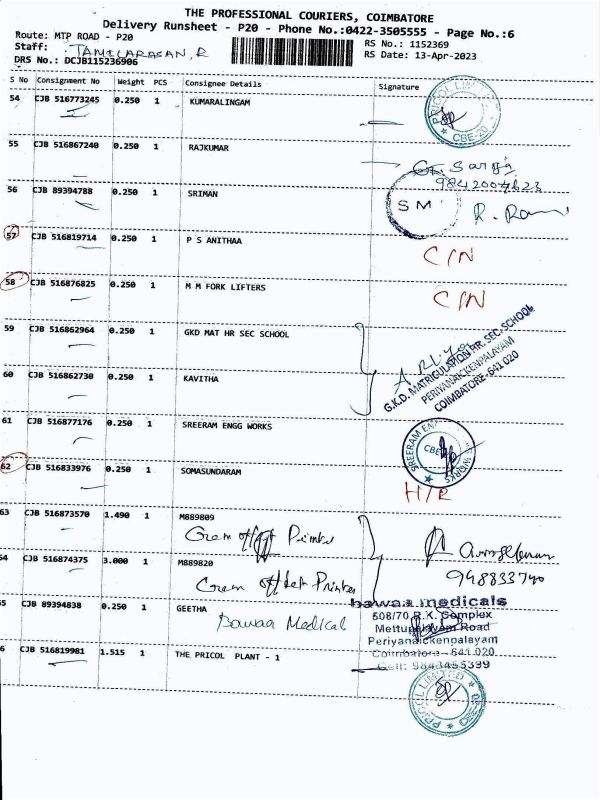 THE PROFESSIONAL COURIERS, COIMBATORE
Delivery Runsheet - P20 - Phone No.:0422-3505555 - Page No.:6
Route: MTP ROAD - P20
RS No.: 1152369
Staff: TAMILARASAN, R
RS Date: 13-Apr-2023
DRS No.: DCJB115236906
S No Consignment No Weight PCS Consignee Details Signature
54 CJB 516773245 0.250 1 KUMARALINGAM
PRICOL LIMITED CBE-20
55 CJB 516867240 0.250 1 RAJKUMAR
56 CJB 89394788 0.250 1 SRIMAN
SM
57 CJB 516819714 0.250 1 P S ANITHAA
C/N
58 CJB 516876825 0.250 1 M M FORK LIFTERS
C/N
59 CJB 516862964 0.250 1 GKD MAT HR SEC SCHOOL
G.K.D. MATRICULATION HR. SEC. SCHOOL
PERIYANAICKENPALAYAM
COIMBATORE-641 020
60 CJB 516862730 0.250 1 KAVITHA
61 CJB 516877176 0.250 1 SREERAM ENGG WORKS
62 CJB 516833976 0.250 1 SOMASUNDARAM
63 CJB 516873570 1.490 1 M889809
CJB 516874375 3.000 1 M889820
CJB 89394838 0.250 1 GEETHA
Bawaa Medical
bawaa medicals
508/70 R.K. Complex
Mettupalayam Road
Periyanaickenpalayam
Coimbatore - 641 020
Cell: 9843455399
CJB 516819981 1.515 1 THE PRICOL PLANT - 1
PRICOL LIMITED